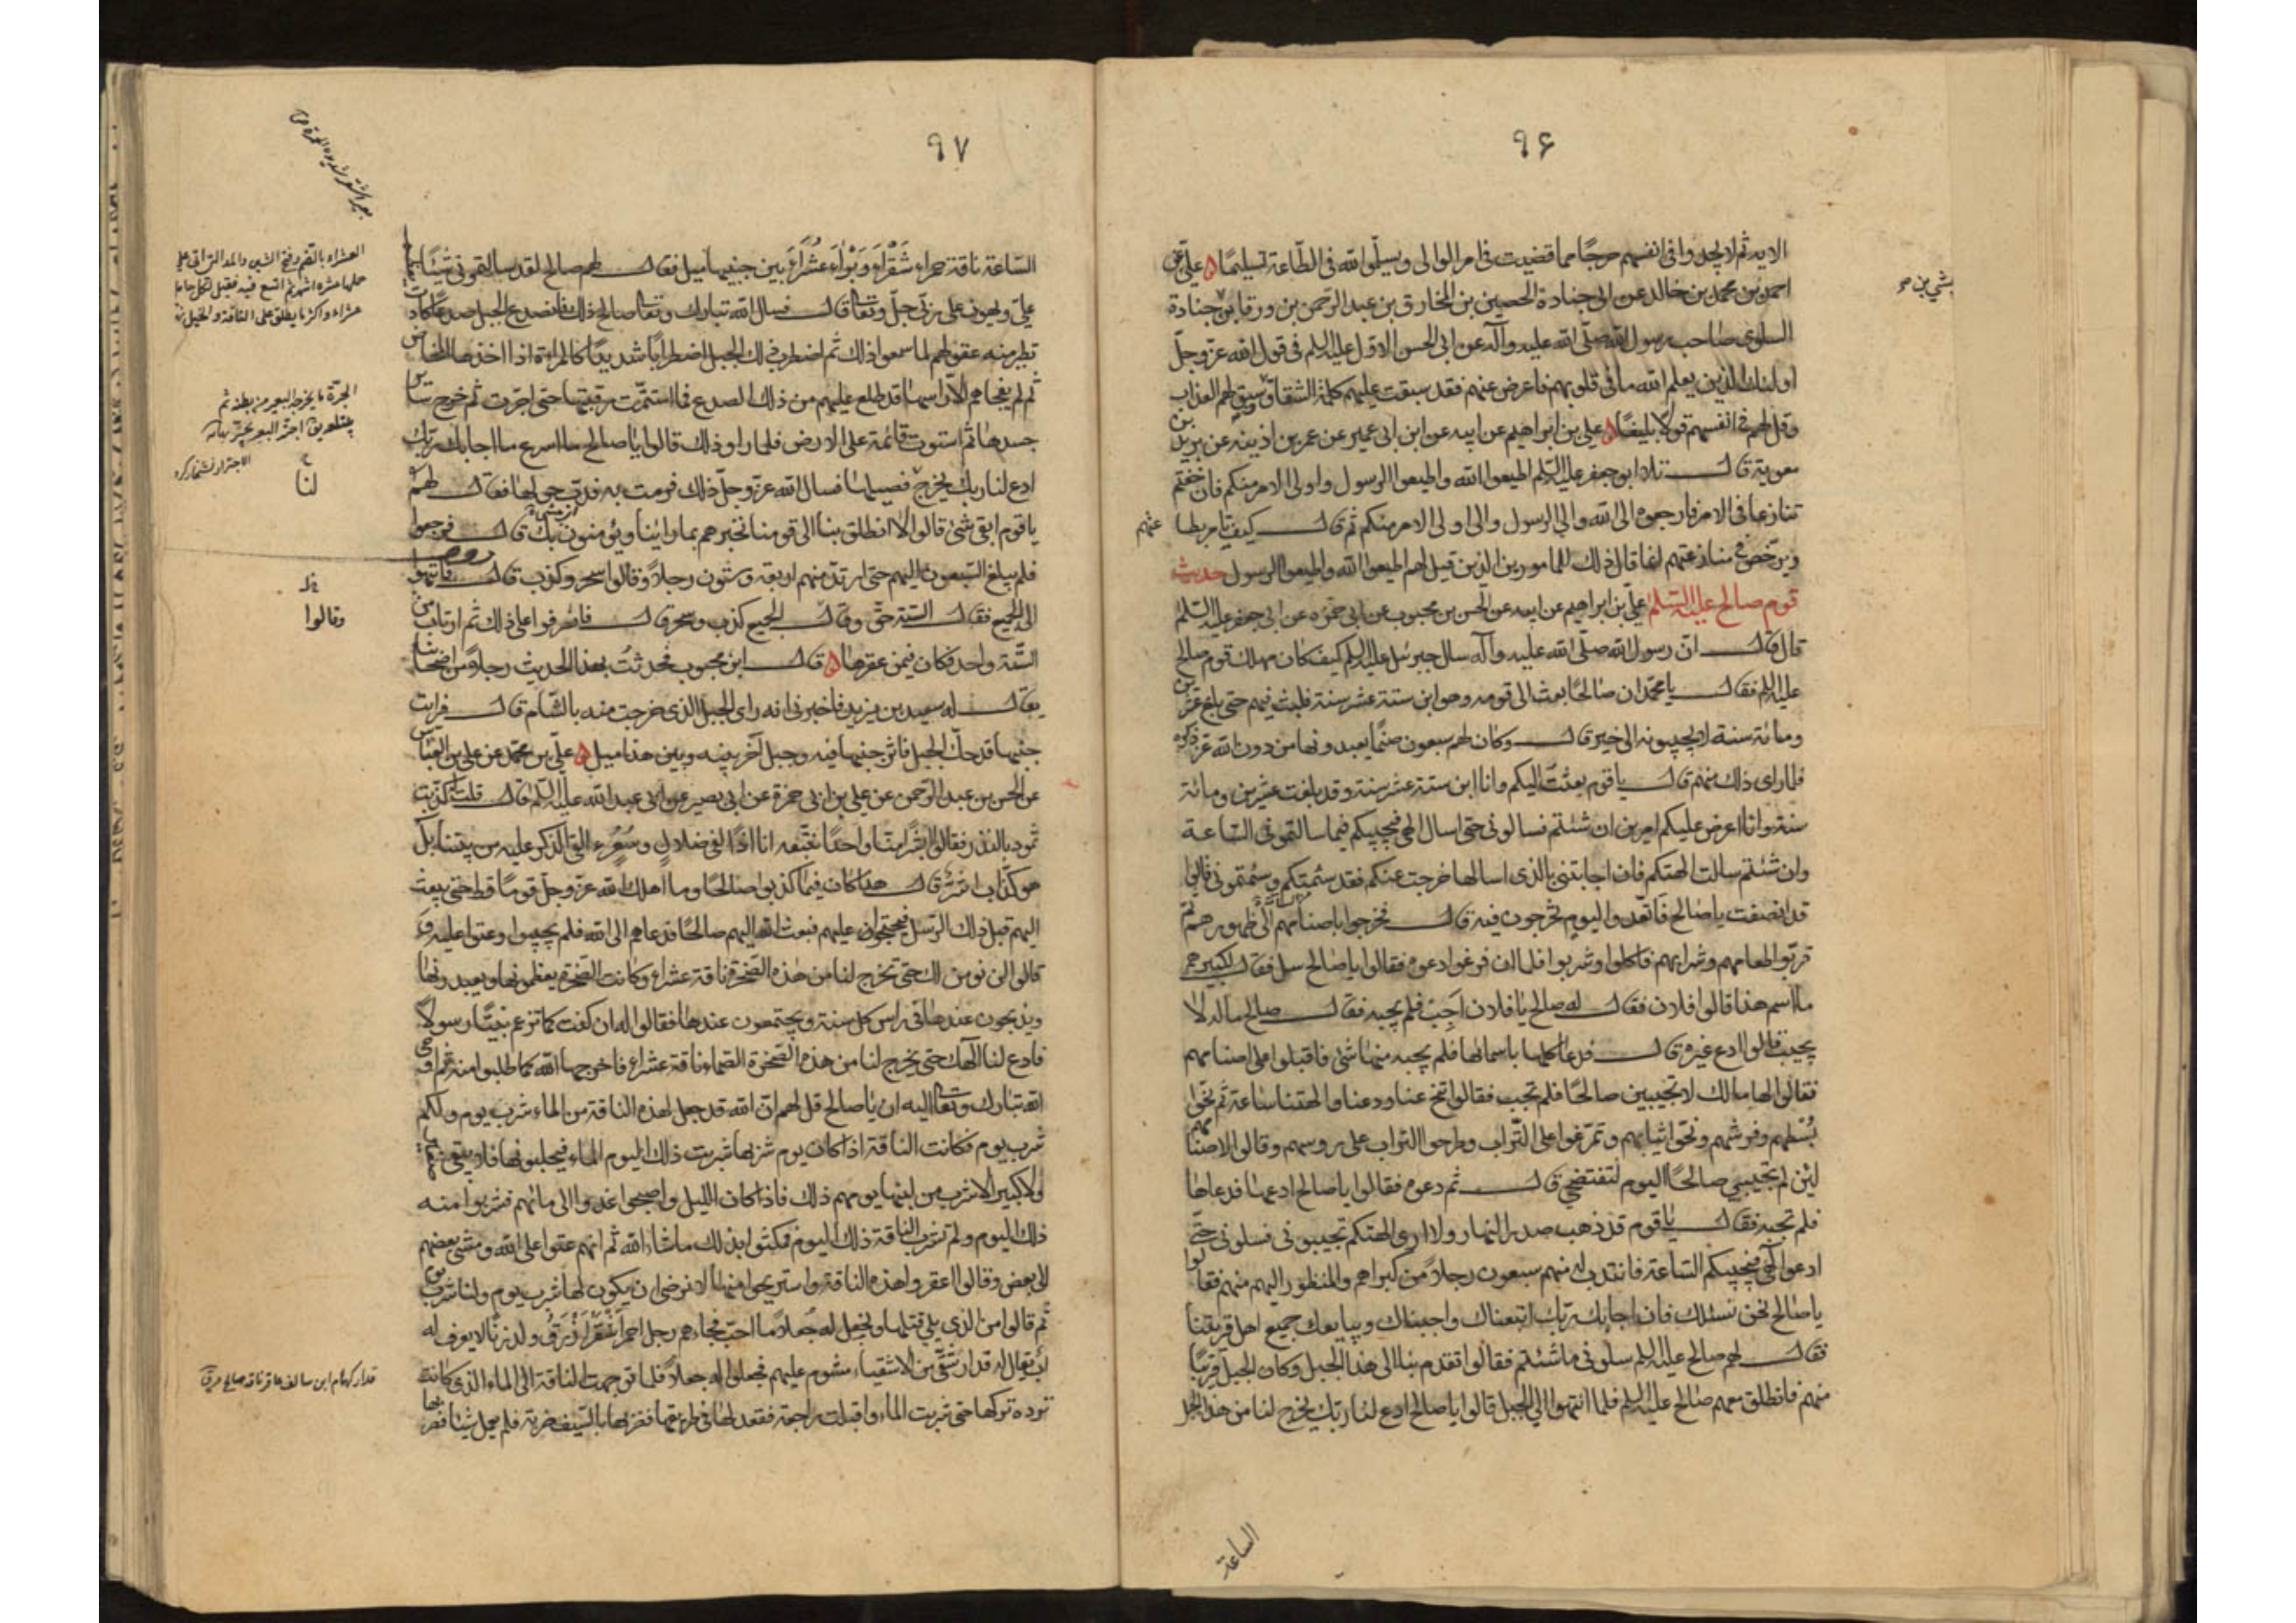 ٩۶
الايه ثم لا يجدوا فى انفسهم حرجًا مما قضيت فى امر الوالى ويسلّموا لله فى الطّاعة تسليمًا ۵ علىّ عن
احمد بن محمد بن خالد عن ابى جنادة الحصين بن المخارق بن عبد الرّحمن بن ورقا بن جنادة
السلولى صاحب رسول الله صلّى الله عليه وآله عن ابى الحسن الاول عليه السلم فى قول الله عزّ وجلّ
اولئك الذين يعلم الله ما فى قلوبهم فاعرض عنهم فقد سبقت عليهم كلمة الشقاق وسبق لهم العذاب
وقل لهم فى انفسهم قولًا بليغًا ۵ على بن ابراهيم عن ابيه عن ابن ابى عمير عن عمر بن اذينه عن بريد بن
معوية قال تلا ابو جعفر عليه السّلم اطيعوا الله واطيعوا الرسول واولى الامر منكم فان خفتم
تنازعا فى الامر فارجعوه الى الله والى الرسول والى اولى الامر منكم ثم قال كيف يامر بطا عتهم
ويرخّص فى منازعتهم انما قال ذلك للمامورين الذين قيل لهم اطيعوا الله واطيعوا الرسول حديث
قوم صالح عليه السّلم علىّ بن ابراهيم عن ابيه عن الحسن بن محبوب عن ابى حمزه عن ابى جعفر عليه السّلم
قال قال ان رسول الله صلّى الله عليه وآله سال جبرئيل عليه السلم كيف كان مهلك قوم صالح
عليه السلم فقال يا محمّد ان صالحًا بعث الى قومه وهو ابن ستة عشر سنة فلبث فيهم حتى بلغ عشرين
ومائة سنة لا يجيبونه الى خير قال وكان لهم سبعون صنمًا يعبدونها من دون الله عزّ ذكره
فلما راى ذلك منهم قال يا قوم بعثت اليكم وانا ابن ستة عشر سنة وقد بلغت عشرين ومائة
سنة وانا اعرض عليكم امرين ان شئتم فسالونى حتى اسال الهى فيجيبكم فيما سالتمونى السّاعة
وان شئتم سالت الهتكم فان اجابتنى بالذى اسالها خرجت عنكم فقد سئمتكم وسئمتمونى قالوا
قد انصفت يا صالح فاتّعدوا ليوم يخرجون فيه قال فخرجوا باصنامهم الى ظهورهم ثم
قربّوا طعامهم وشرابهم فاكلوا وشربوا فلما ان فرغوا دعوه فقالوا يا صالح سل فقال لكبيرهم
ما اسم هذا قالوا فلان فقال له صالح يا فلان اَجِبْ فلم يجبه فقال صالح ماله لا
يجيب قالوا ادع غيره قال فدعا كلها باسمائها فلم يجبه منها شئ فاقبلوا على اصنامهم
فقالوا لها مالك لا تجيبين صالحًا فلم تجب فقالوا تنحّ عنا ودعنا والهتنا ساعة ثم نحّوا
بُسُطهم وفرشهم ونحّوا ثيابهم وتمرّغوا على التّراب وطرحوا التراب على روسهم وقالوا لاصنامهم
لئن لم تجيبى صالحًا اليوم لتفتضحى قال ثم دعوه فقالوا يا صالح ادعها فدعاها
فلم تجبه فقال يا قوم قد ذهب صدر النهار ولا ارى الهتكم تجيبونى فسلونى حتّى
ادعوا الهى فيجيبكم السّاعة فانتدب له منهم سبعون رجلًا من كبراهم والمنظور اليهم منهم فقالوا
يا صالح نحن نسئلك فان اجابك ربّك اتبعناك واجبناك ويبايعك جميع اهل قريتنا
فقال لهم صالح عليه السلم سلونى ما شئتم فقالوا تقدم بنا الى هذا الجبل وكان الجبل قريبًا
منهم فانطلق معهم صالح عليه السلم فلما انتهوا الى الجبل قالوا يا صالح ادع لنا ربّك يخرج لنا من هذا الجبل
الساعة
٩٧
السّاعة ناقة حمراء شَقْرَاءَ وَبْرَاءَ عُشَرَاءَ بين جنبيها ميل فقال لهم صالح لقد سالتمونى شيئًا يعظم
علىّ ويهون على ربّى جلّ وتعالى قال فسال الله تبارك وتعالى صالح ذلك فانصدع الجبل صدعًا كادت
تطير منه عقولهم لما سمعوا ذلك ثم اضطرب ذلك الجبل اضطرابًا شديدًا كالمراة اذا اخذها المخاض
ثم لم يفجاهم الّا راسها قد طلع عليهم من ذلك الصدع فما استتمّت رقبتها حتى اجترت ثم خرج سائر
جسدها ثم استوت قائمة على الارض فلما راوا ذلك قالوا يا صالح ما اسرع ما اجابك ربّك
ادع لنا ربك يخرج فصيلها فسال الله عزّ وجلّ ذلك فرمت به فدبّ حولها فقال لهم
يا قوم ابقى شئ قالوا لا انطلق بنا الى قومنا نخبرهم بما راينا ويؤمنون بك قال فرجعوا
فلم يبلغ السّبعون اليهم حتى ارتدّ منهم اربعة وستون رجلًا وقالوا سحر وكذب قال فانتهوا
الى الجميع فقال الستة حقّ وقال الجميع كذب وسحر قال فانصرفوا على ذلك ثم ارتاب من
السّتة واحد فكان فيمن عقرها ۵ قال ابن محبوب فحدثتُ بهذا الحديث رجلًا من اصحابنا
يقال له سعيد بن يزيد فاخبرنى انه راى الجبل الذى خرجت منه بالشّام قال فرايت
جنبها قد حكّ الجبل فاثر جنبها فيه وجبل آخر بينه وبين هذا ميل ۵ علىّ بن محمّد عن على بن العباس
عن الحسن بن عبد الرّحمن عن على بن ابى حمزة عن ابى بصير عن ابى عبد الله عليه السّلم قال قلت له كذّبت
ثمود بالنذر فقالوا ابشرًا منّا واحدًا نتّبعه انا اذًا لفى ضلالٍ وسُعُرٍ ءالقى الذكر عليه من بيننا بل
هو كذّاب اشر قال هذا كان فيما كذبوا صالحًا وما اهلك الله عزّ وجلّ قومًا قط حتى يبعث
اليهم قبل ذلك الرّسل فيحتجّوا عليهم فبعث الله اليهم صالحًا فدعاهم الى الله فلم يجيبوا وعتوا عليه و
قالوا لن نومن لك حتى تخرج لنا من هذه الصّخرة ناقة عشراء وكانت الصّخرة يعظمونها ويعبدونها
ويذبحون عندها فى راس كل سنة ويجتمعون عندها فقالوا له ان كنت كما تزعم نبيًّا رسولًا
فادع لنا الٰهك حتى يخرج لنا من هذه الصّخرة الصّماء ناقة عشراء فاخرجها الله كما طلبوا منه ثم اوحى
الله تبارك وتعالى اليه ان يا صالح قل لهم انّ الله قد جعل لهذه الناقة من الماء شرب يوم ولكم
شرب يوم فكانت الناقة اذا كان يوم شربها شربت ذلك اليوم الماء فيحلبونها فلا يبقى صغير
ولا كبير الا شرب من لبنها يومهم ذلك فاذا كان الليل واصبحوا غدوا الى مائهم فشربوا منه
ذلك اليوم ولم تشرب الناقة ذلك اليوم فمكثوا بذلك ما شاء الله ثم انهم عتوا على الله ومشى بعضهم
الى بعض وقالوا اعقروا هذه الناقة واستريحوا منها لا نرضى ان يكون لها شرب يوم ولنا شرب يوم
ثم قالوا من الذى يلى قتلها ونجعل له جُعلًا ما احبّ فجاءهم رجل احمر اَشْقَر اَزْرَقُ ولد زنًا لا يعرف له
اب يقال له قدار شقىّ من الاشقياء مشوم عليهم فجعلوا له جعلًا فلما توجهت الناقة الى الماء الذى كانت
ترده تركها حتى شربت الماء واقبلت راجعة فقعد لها فى طريقها فضربها بالسّيف ضربة فلم تعمل شيئا فضربها
العشراء بالضم وفتح الشين والمد التى اتى على
حملها عشرة اشهر ثم اتسع فيه فقيل لكل حامل
عشراء واكثر ما يطلق على الناقة والخيل
الجرّة ما يخرجه البعير من بطنه ثم
لنا
وقالوا